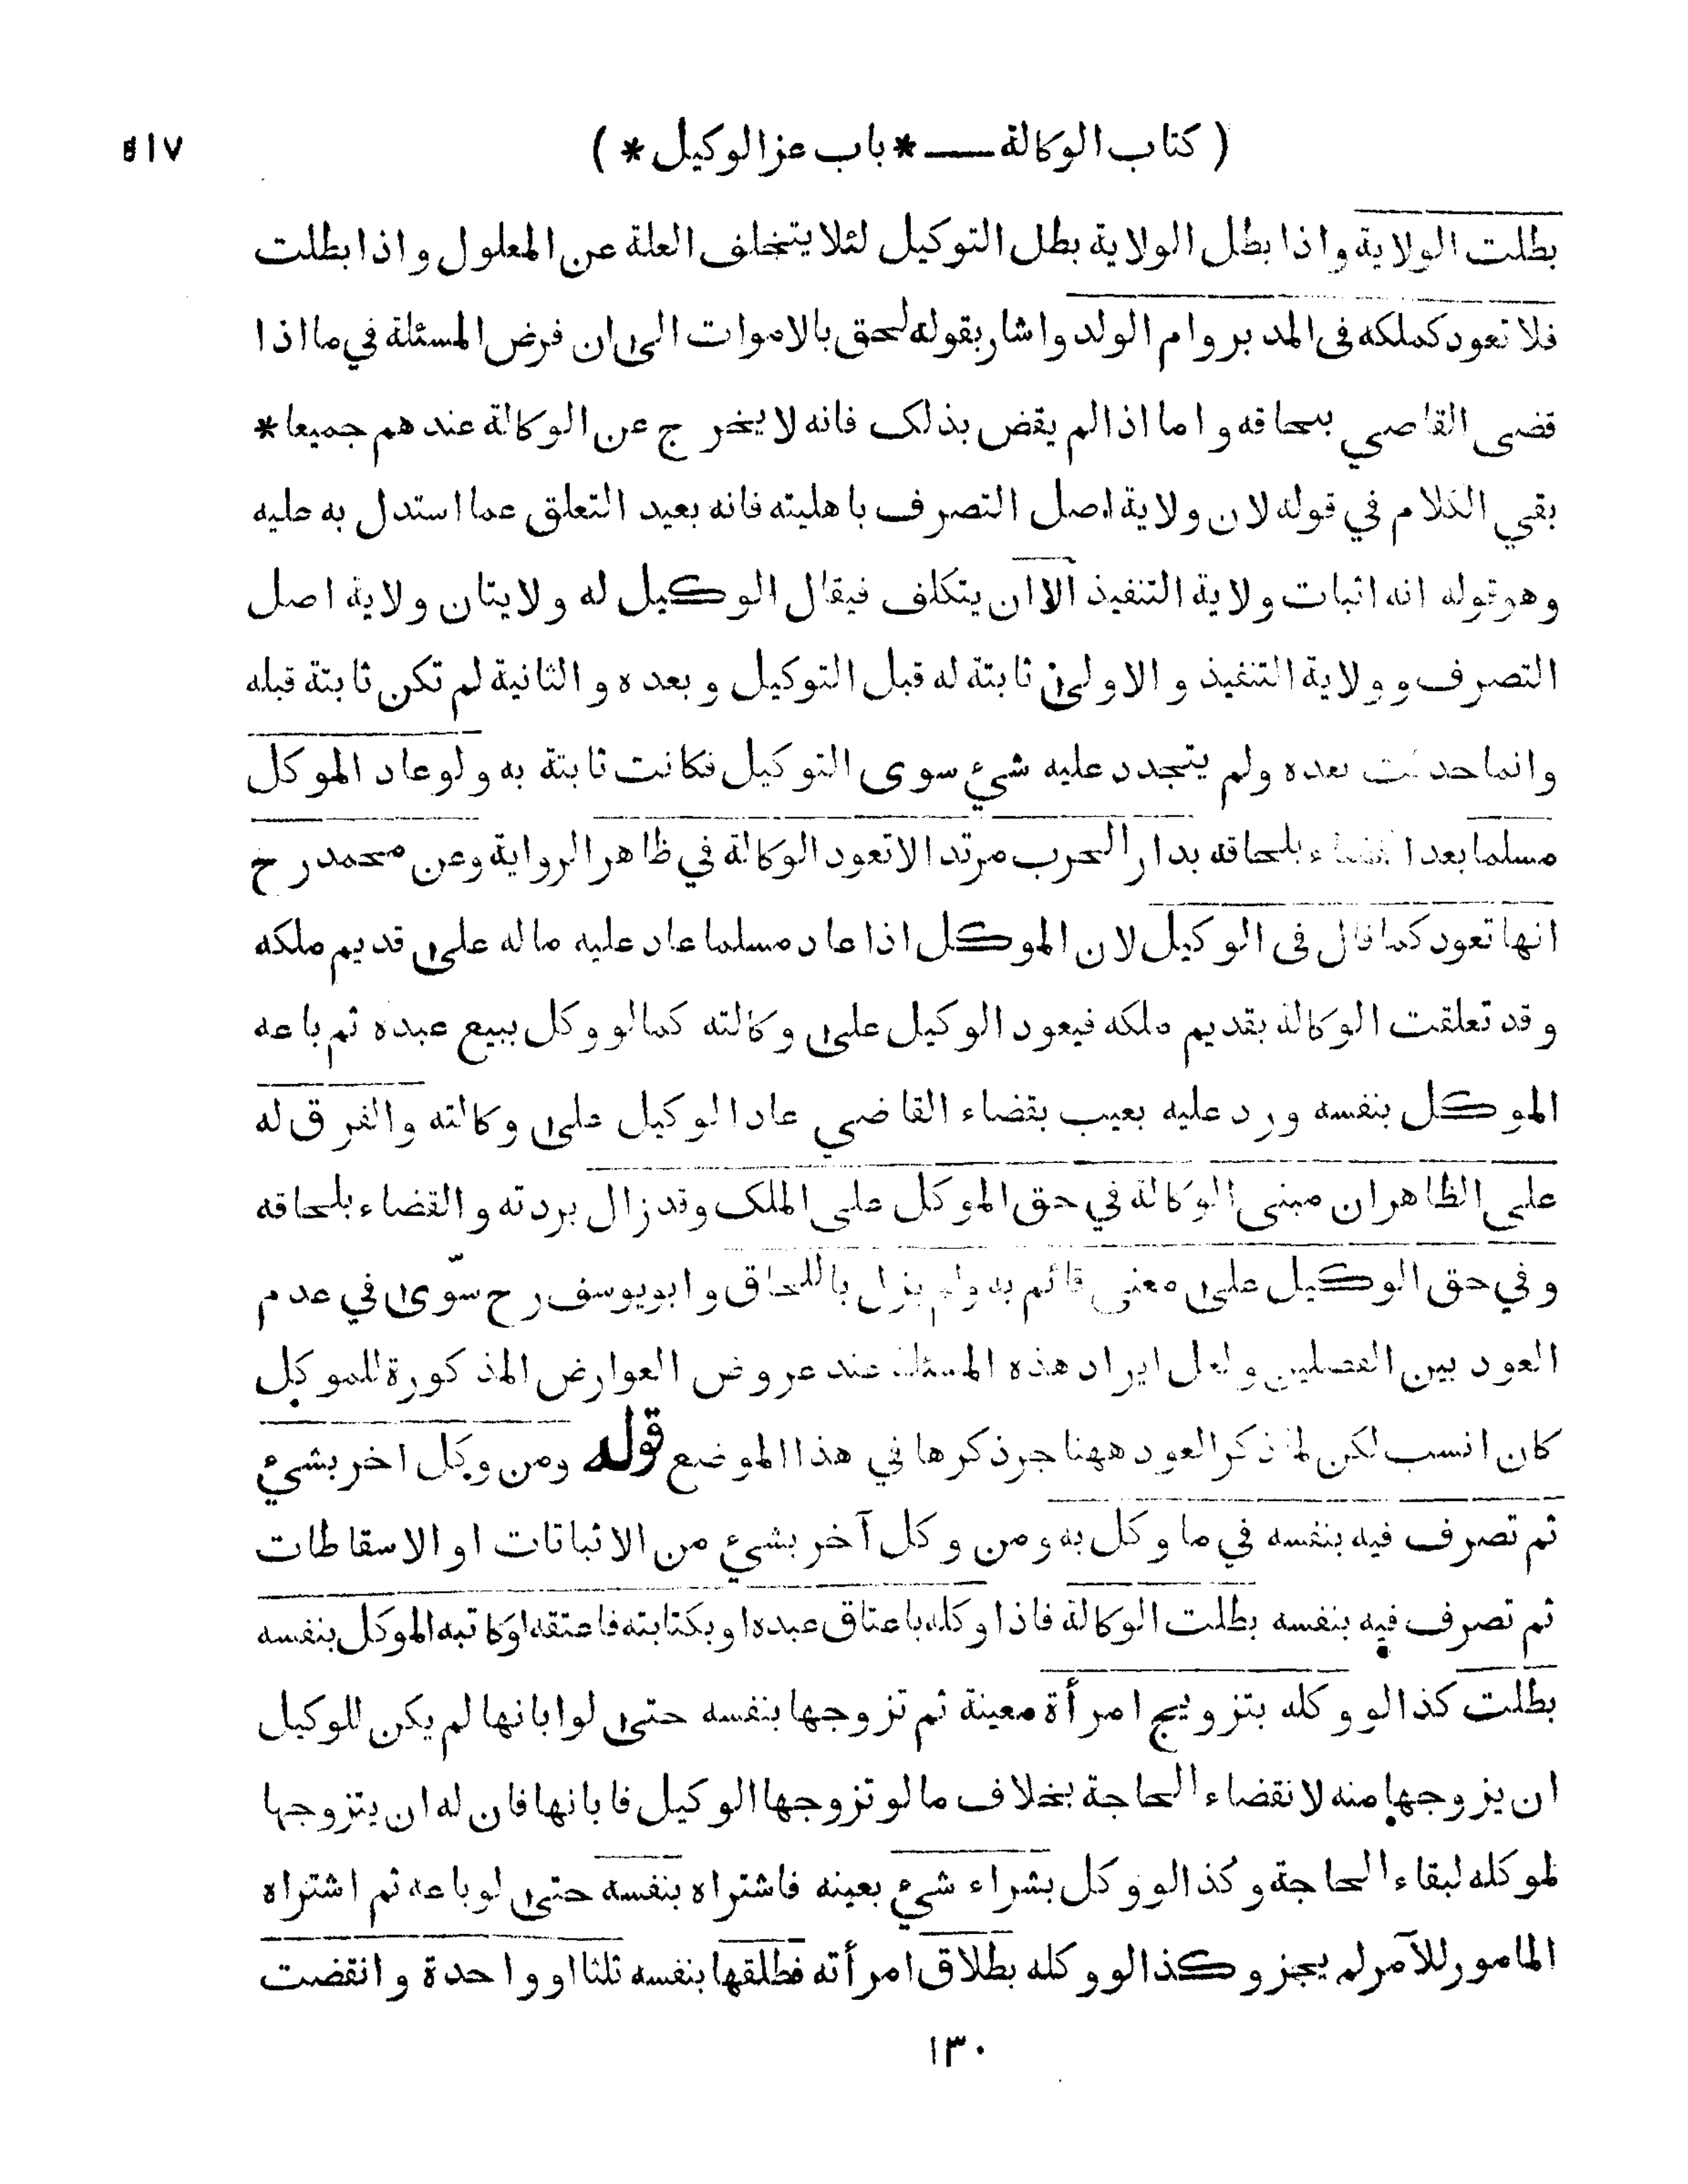 ( كتاب الوكالة ـــ * باب عز الوكيل * ) ٥١٧
بطلت الولاية واذا بطل الولاية بطل التوكيل لئلا يتخلف العلة عن المعلول واذا بطلت
فلا تعود كملكه فى المدبر وام الولد واشار بقوله لحق بالاموات الى ان فرض المسئلة في ما اذا
قضى القاضي بلحاقه واما اذا لم يقض بذلك فانه لا يخرج عن الوكالة عندهم جميعا *
بقي الكلام في قوله لان ولاية اصل التصرف باهليته فانه بعيد التعلق عما استدل به عليه
وهو قوله انه اثبات ولاية التنفيذ الا ان يتكلف فيقال الوكيل له ولايتان ولاية اصل
التصرف وولاية التنفيذ والاولى ثابتة له قبل التوكيل وبعده والثانية لم تكن ثابتة قبله
وانما حدثت بعده ولم يتجدد عليه شيء سوى التوكيل فكانت ثابتة به ولو عاد الموكل
مسلما بعد القضاء بلحاقه بدار الحرب مرتدا لا تعود الوكالة في ظاهر الرواية وعن محمد رح
انها تعود كما قال فى الوكيل لان الموكل اذا عاد مسلما عاد عليه ماله على قديم ملكه
وقد تعلقت الوكالة بقديم ملكه فيعود الوكيل على وكالته كما لو وكل ببيع عبده ثم باعه
الموكل بنفسه ورد عليه بعيب بقضاء القاضي عاد الوكيل على وكالته والفرق له
على الظاهر ان مبنى الوكالة في حق الموكل على الملك وقد زال بردته والقضاء بلحاقه
وفي حق الوكيل على معنى قائم به ولم يزل باللحاق وابو يوسف رح سوّى في عدم
العود بين الفصلين ولعل ايراد هذه المسئلة عند عروض العوارض المذكورة للموكل
كان انسب لكن لما ذكر العود ههنا جر ذكرها في هذا الموضع قوله ومن وكل اخر بشيء
ثم تصرف فيه بنفسه في ما وكل به ومن وكل آخر بشيء من الاثباتات او الاسقاطات
ثم تصرف فيه بنفسه بطلت الوكالة فاذا وكله باعتاق عبده او بكتابته فاعتقه او كاتبه الموكل بنفسه
بطلت كذا لو وكله بتزويج امرأة معينة ثم تزوجها بنفسه حتى لو ابانها لم يكن للوكيل
ان يزوجها منه لانقضاء الحاجة بخلاف ما لو تزوجها الوكيل فابانها فان له ان يتزوجها
لموكله لبقاء الحاجة وكذا لو وكل بشراء شيء بعينه فاشتراه بنفسه حتى لو باعه ثم اشتراه
المامور للآمر لم يجز وكذا لو وكله بطلاق امرأته فطلقها بنفسه ثلثا او واحدة وانقضت
١٣٠